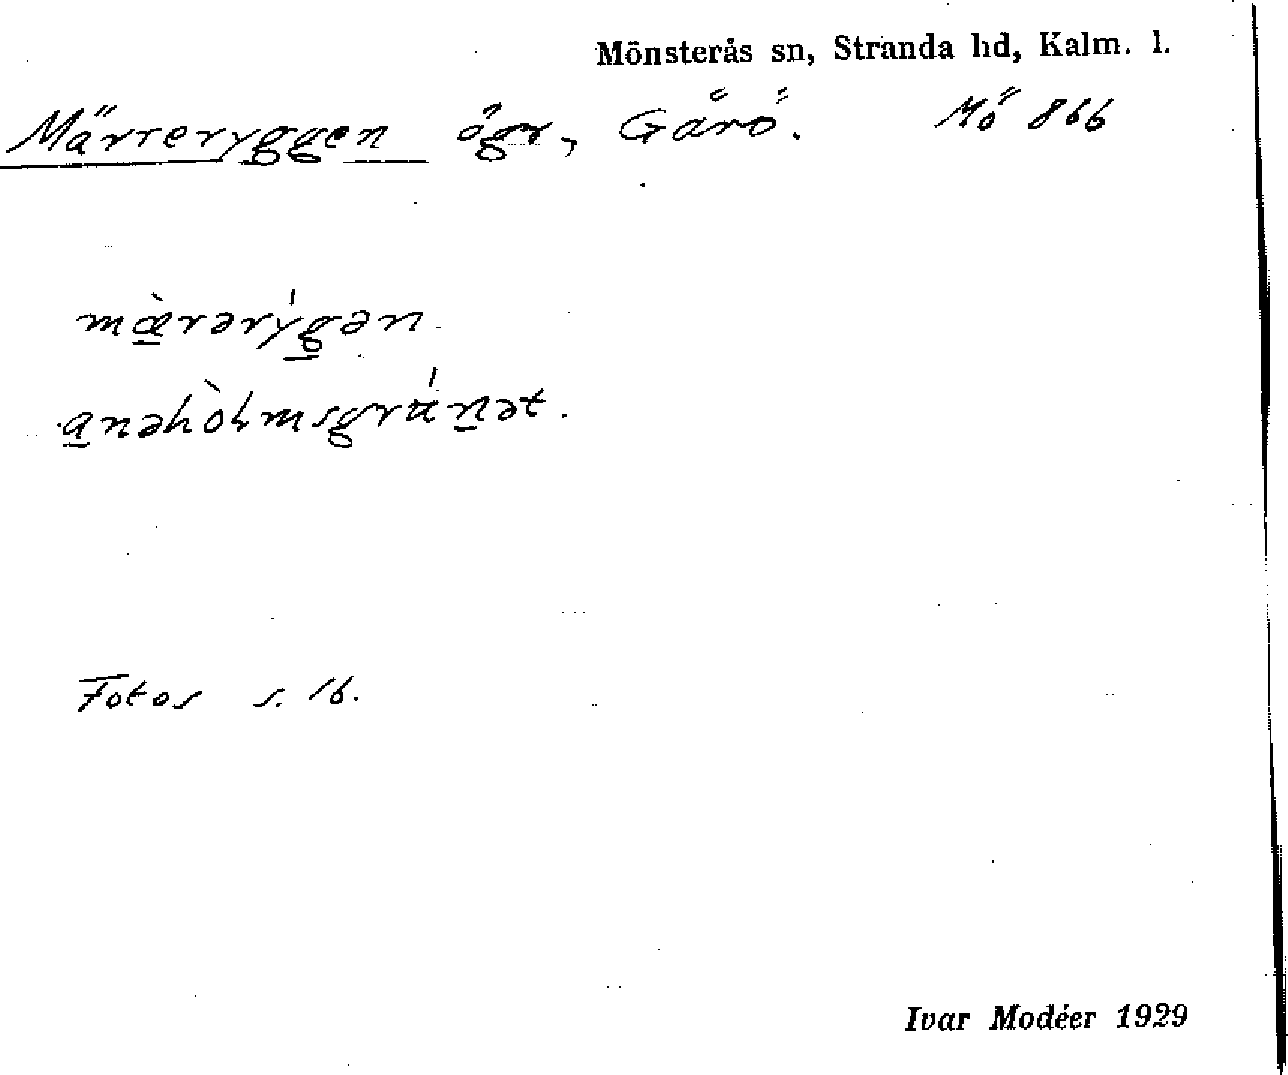 Mönsterås sn, Stranda hd, Kalm. l.
Märreryggen ögr, Gårö. Mö 866
mæ̀rərýgən
anəhòlmsgrúnət.
Fotos s. 16.
Ivar Modéer 1929